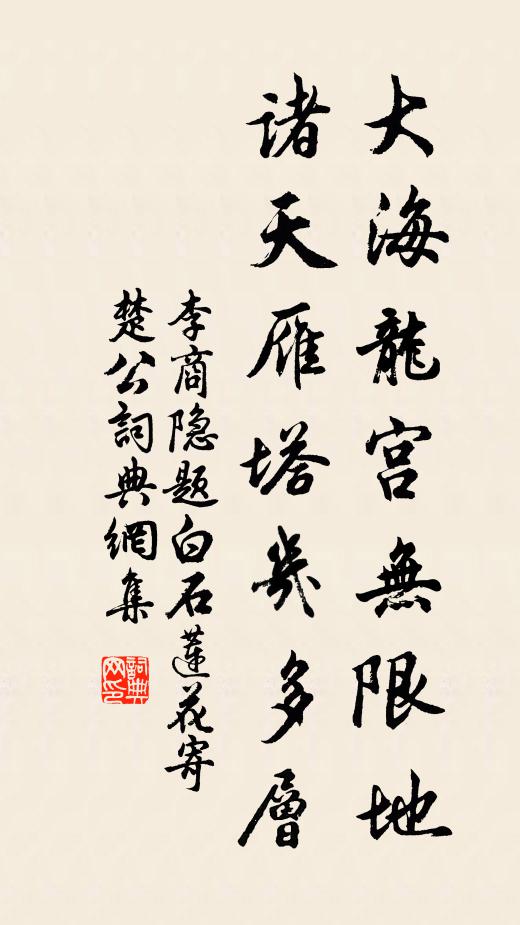 大海龍宮無限地
诸天雁塔幾多層
李商隐题白石蓮花寄
楚公詞典網集
詞典网印